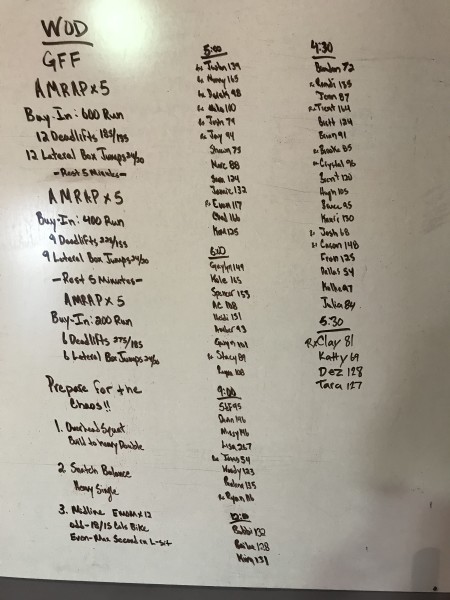 WOD
GFF
AMRAP x 5
Buy-In: 600 Run
12 Deadlifts 185/135
12 Lateral Box Jumps 24/20
-Rest 5 Minutes-
AMRAP x 5
Buy-In: 400 Run
9 Deadlifts 225/155
9 Lateral Box Jumps 24/20
-Rest 5 Minutes-
AMRAP x 5
Buy-In: 200 Run
6 Deadlifts 275/185
6 Lateral Box Jumps 24/20
Prepare for the
Chaos!!
1. Overhead Squat
Build to heavy Double
2. Snatch Balance
Heavy Single
3. Midline EMOM x 12
odd-18/15 Cals Bike
Even-Max Second in L-sit
5:00
139
Rx 165
Rx Derek 98
110
Rx Josh 79
Rx Jay 94
Shawn 75
Marc 88
124
Jamie 132
Rx Evan 117
Chad 166
Kim 125
149
Kole 165
Spencer 153
AC 108
Heidi 131
Amber 93
101
Rx Stacy 89
108
9:00
95
146
Missy 146
Lisa 267
Rx 54
Woody 123
135
Rx Ryan 116
12:00
Bobbi 132
128
King 131
4:30
Brandon 72
Rx Randi 135
Jenn 87
Rx Trent 164
Brett 124
Brian 91
Rx Brooke 85
Rx Crystal 96
Brent 120
Hugh 105
Bruce 95
130
Rx Josh 68
Rx Carson 148
Fran 125
Dallas 54
97
Julia 84
5:30
Rx Clay 81
Katty 69
Dez 128
Tara 127